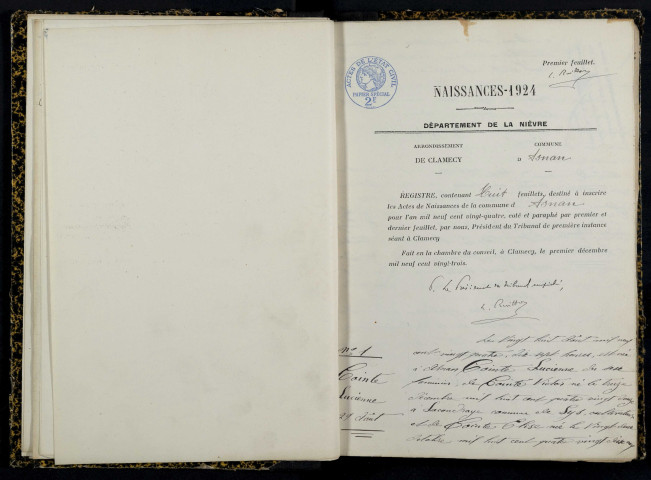 Premier feuillet.
ACTES DE L'ETAT CIVIL
PAPIER SPECIAL
2F
NAISSANCES-1924
DÉPARTEMENT DE LA NIÈVRE
ARRONDISSEMENT
DE CLAMECY
COMMUNE
D Asnan
REGISTRE, contenant Huit feuillets, destiné à inscrire
les Actes de Naissances de la commune d Asnan
pour l'an mil neuf cent vingt-quatre, coté et paraphé par premier et
dernier feuillet, par nous, Président du Tribunal de première instance
séant à Clamecy
Fait en la chambre du conseil, à Clamecy, le premier décembre
mil neuf cent vingt-trois.
P. Le Président du tribunal
No 1
Cointe
Lucienne
28 Août
Le vingt huit Août mil neuf
cent vingt quatre, dix sept heures, est née
à Asnan Cointe Lucienne du sexe
féminin, de Cointe né le
décembre mil huit cent quatre vingt
à commune de
et de Cointe Elise née le vingt
octobre mil huit cent quatre vingt